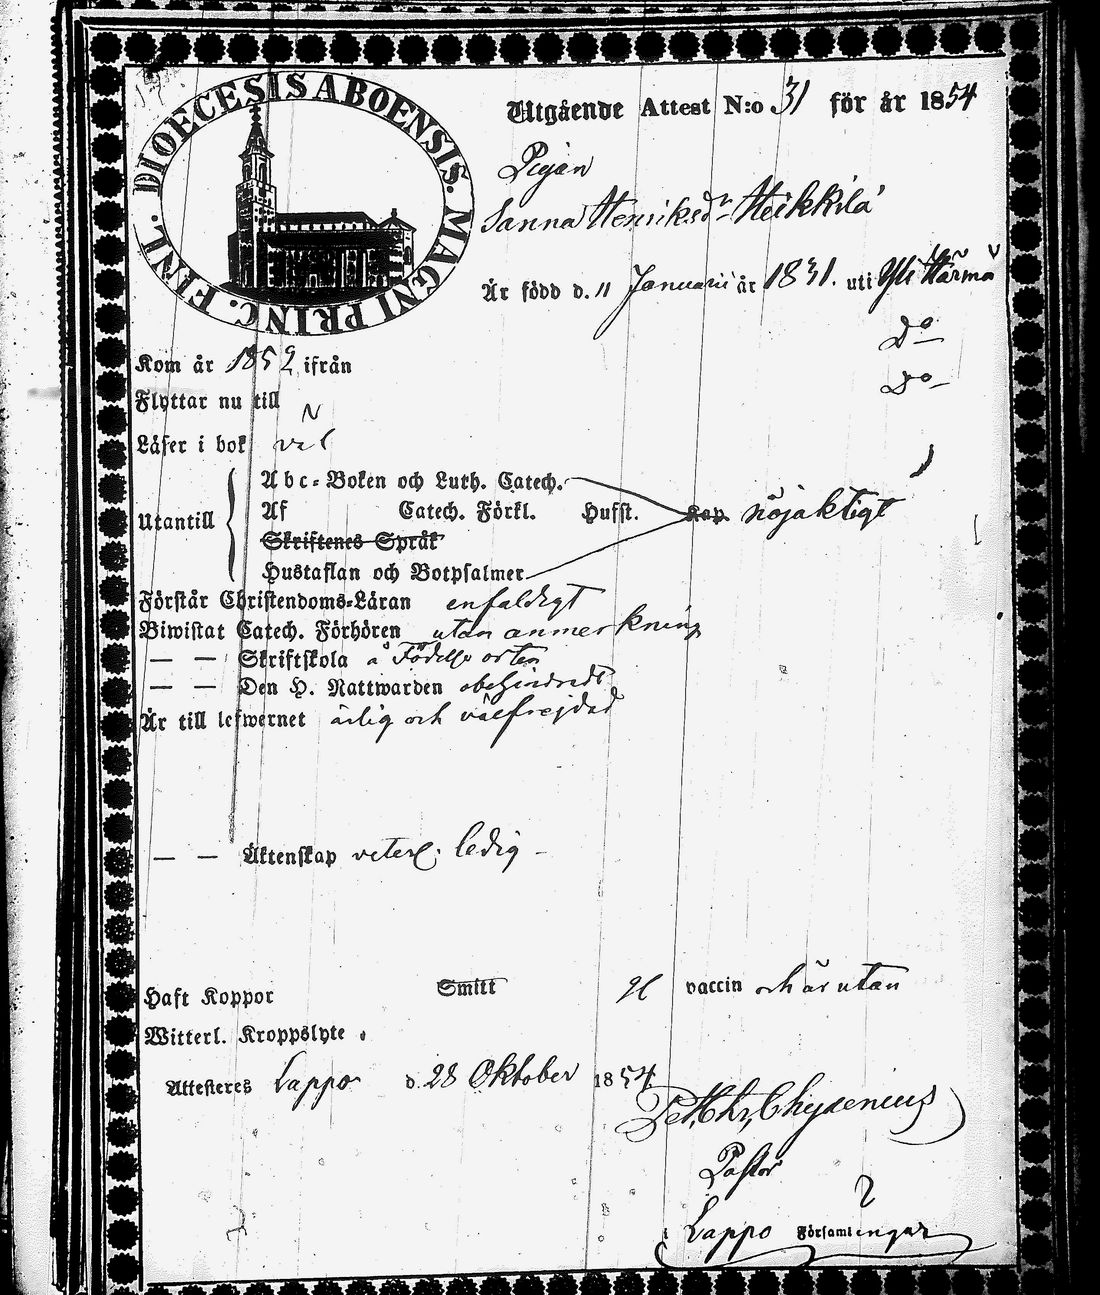 DIOECESIS ABOENSIS. MAGNI PRINC. FINL.
Utgående Attest N:o 31 för år 1854
Pigan
Sanna Henriksdr Heikkilä
Är född d. 11 Januarii år 1831. uti Yli Härmä
Kom år 1852 ifrån Do
Flyttar nu till Do
Läser i bok väl
Utantill
Abc-Boken och Luth. Catech.
Af Catech. Förkl. Husst. Kap nöjaktigt
Skriftenes Språk
Hustaflan och Botpsalmer
Förstår Christendoms-Läran enfaldigt
Biwistat Catech. Förhören utan anmerkning
— — Skriftskola å Födelse orten
— — Den H. Nattwarden obehindradt
Är till lefwernet ärlig och välfrejdad
— — Äktenskap veterl. ledig -
Haft Koppor Smitt vaccin och är utan
Witterl. Kroppslyte.
Attesteres Lappo d. 28 Oktober 1854
Pet. Chr. Chydenius
Pastor
i Lappo Församlingar